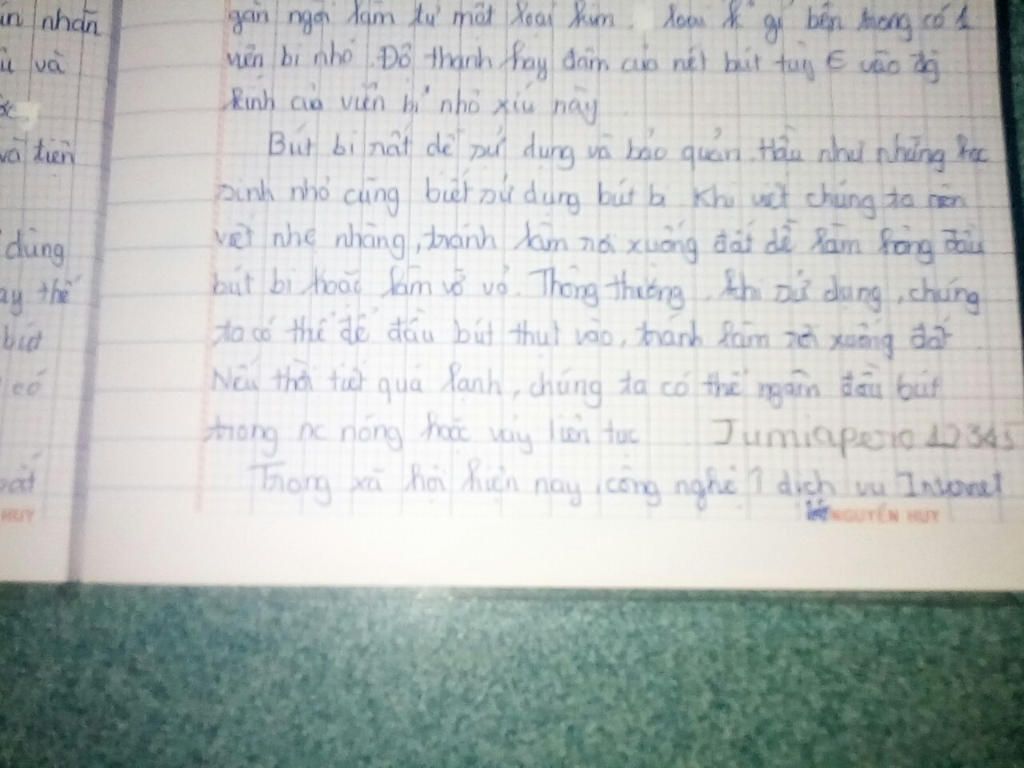 ngòi làm từ một loại kim loại k gỉ bên trong có 1
viên bi nhỏ. Độ thanh hay đậm của nét bút tùy ∈ vào đg
kính của viên bi nhỏ xíu này
Bút bi rất dễ sử dụng và bảo quản. Hầu như những học
sinh nhỏ cũng biết sử dụng bút bi. Khi viết chúng ta nên
viết nhẹ nhàng, tránh làm rơi xuống đất dễ làm hỏng đầu
bút bi hoặc làm vỡ vỏ. Thông thường, khi sử dụng, chúng
ta có thể để đầu bút thụt vào, tránh làm rơi xuống đất.
Nếu thời tiết quá lạnh, chúng ta có thể ngâm đầu bút
trong nc nóng hoặc vẩy liên tục Jumiapero 12345
Trong xã hội hiện nay, công nghệ, dịch vụ Internet
NGUYỄN HUY
nhãn
và
và tiện
dùng
ay thế
bút
có
HUY